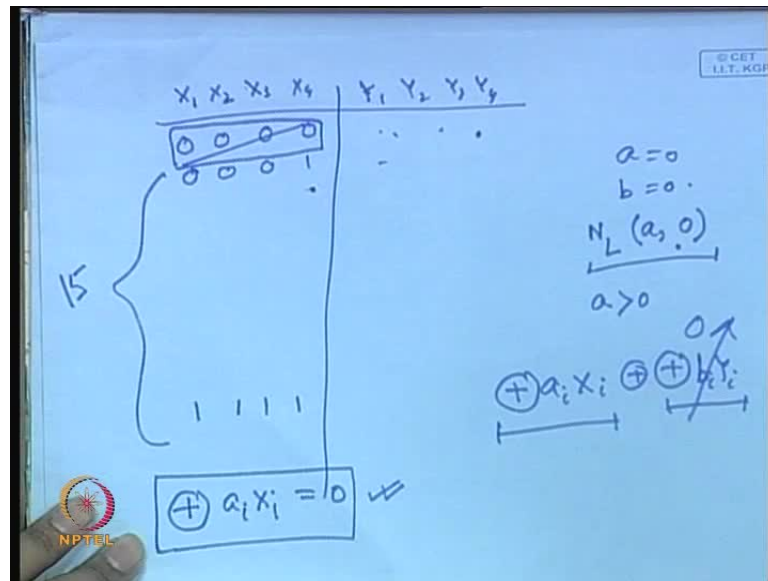 © CET
I.I.T. KGP
X₁ X₂ X₃ X₄ Y₁ Y₂ Y₃ Y₄
0 0 0 0
0 0 0 1
15
1 1 1 1
⊕ aᵢ xᵢ = 0
a = 0
b = 0
N_L (a, 0)
a > 0
0
⊕ aᵢ xᵢ ⊕ ⊕ bᵢ Yᵢ
NPTEL